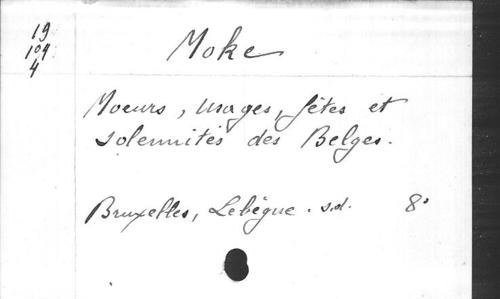 19
104
4
Moke
Moeurs, usages, fêtes et
solennités des Belges.
Bruxelles, Lebègue. s.d. 8°